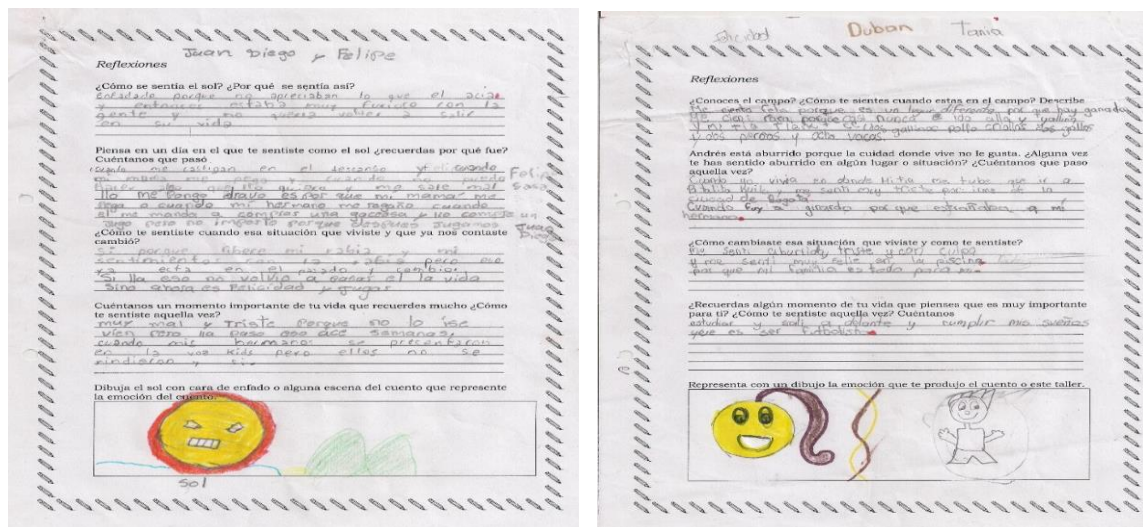 Juan Diego y Felipe
Reflexiones
¿Cómo se sentía el sol? ¿Por qué se sentía así?
enfadado porque no apreciaban lo que el acia
y entonces estaba muy furioso con la
gente y no queria volver a salir
en su vida
Piensa en un día en el que te sentiste como el sol ¿recuerdas por qué fue?
Cuéntanos que pasó
cuando me castigan en el descanso y el cuando
mi mamá me pega y cuando no puedo
hacer algo que llo quiero y me sale mal
Felipe Sosa
llo me pongo bravo es por que mi mama me
pega o cuando mi hermano me regaña cuando
el me manda a comprar una gaceosa y llo compro un
jugo pero no importa porque despues jugamos
Juan Diego
¿Cómo te sentiste cuando esa situación que viviste y que ya nos contaste
cambió?
si porque libere mi rabia y mi
sentimiento con la rabia pero eso
ya esta en el pasado y cambio
Si lla eso no volvio a pasar el la vida
Sino ahora es felicidad y jugar
Cuéntanos un momento importante de tu vida que recuerdes mucho ¿Cómo
te sentiste aquella vez?
muy mal y triste porque no lo ise
vien pero lla paso eso ace semanas.
cuando mis hermanos se presentaron
en la voz kids pero ellos no se
rindieron y
Dibuja el sol con cara de enfado o alguna escena del cuento que represente
la emoción del cuento.
sol
Duban Tania
Reflexiones
¿Conoces el campo? ¿Cómo te sientes cuando estas en el campo? Describe
Me senti feliz porque es un lugar diferente por que hay ganado
Me senti bien porque nunca e ido alla y
y mi tia tiene gallinas pollo criollas dos gallos
y dos perros y ocho vacas
Andrés está aburrido porque la cuidad donde vive no le gusta. ¿Alguna vez
te has sentido aburrido en algún lugar o situación? ¿Cuéntanos que paso
aquella vez?
Cuando yo vivia en donde mi tia me tube que ir a
y me senti muy triste por irme de la
ciudad de Bogota
Cuando fuy a girardo por que estrañaba a mi
hermano.
¿Cómo cambiaste esa situación que viviste y como te sentiste?
Me senti aburrido, triste y con culpa
y me senti muy feliz en la piscina
por que mi familia es todo para mi
¿Recuerdas algún momento de tu vida que pienses que es muy importante
para ti? ¿Cómo te sentiste aquella vez? Cuéntanos
estudiar y salir a delante y cumplir mis sueños
que es ser futbolista
Representa con un dibujo la emoción que te produjo el cuento o este taller.